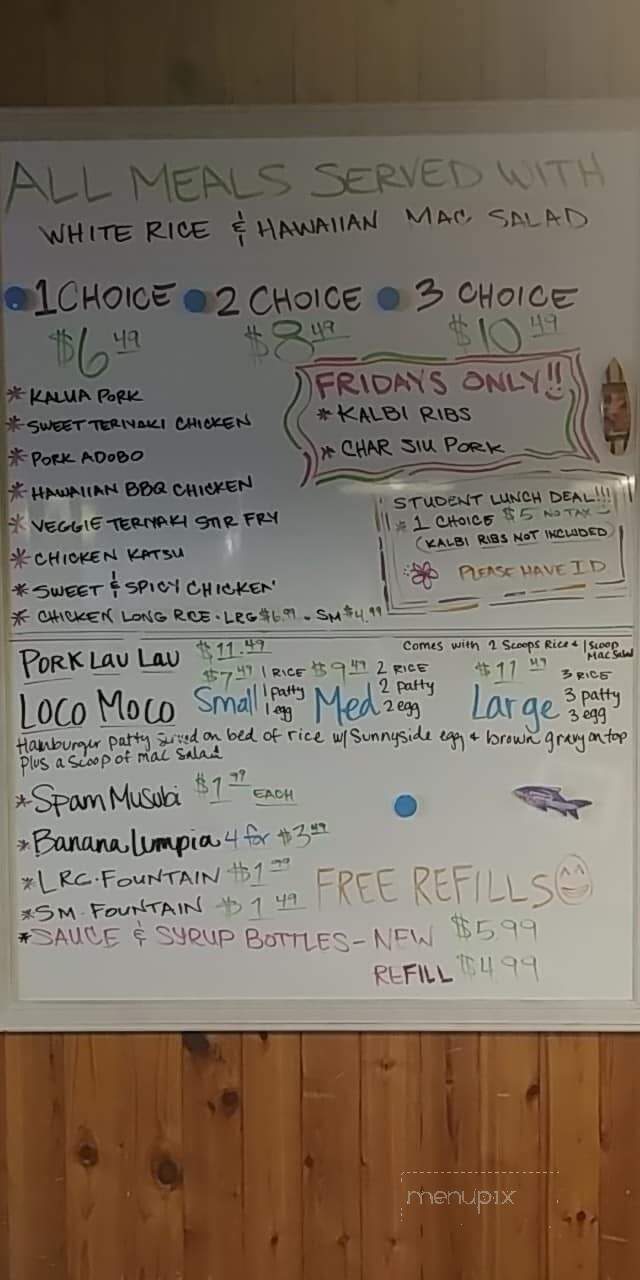 ALL MEALS SERVED WITH
WHITE RICE & HAWAIIAN MAC SALAD
1 CHOICE 2 CHOICE 3 CHOICE
$6.49 $8.49 $10.49
* KALUA PORK
* SWEET TERIYAKI CHICKEN
* PORK ADOBO
* HAWAIIAN BBQ CHICKEN
* VEGGIE TERIYAKI STIR FRY
* CHICKEN KATSU
* SWEET & SPICY CHICKEN
* CHICKEN LONG RCE · LRG $6.99 · SM $4.99
FRIDAYS ONLY!!
* KALBI RIBS
* CHAR SIU PORK
STUDENT LUNCH DEAL!!!
* 1 CHOICE $5 NO TAX
(KALBI RIBS NOT INCLUDED)
PLEASE HAVE ID
PORK LAU LAU $11.49 Comes with 2 Scoops Rice & 1 Scoop Mac Salad
LOCO MOCO
$7.49 1 RICE
Small 1 patty
1 egg
$9.49 2 RICE
Med 2 patty
2 egg
$11.49 3 RICE
Large 3 patty
3 egg
Hamburger patty Served on bed of rice w/ Sunnyside egg & brown gravy on top
Plus a Scoop of mac Salad
* Spam Musubi $1.99 EACH
* Banana Lumpia 4 for $3.49
* LRG. FOUNTAIN $1.99
* SM. FOUNTAIN $1.49
FREE REFILLS
* SAUCE & SYRUP BOTTLES - NEW $5.99
REFILL $4.99
menupix